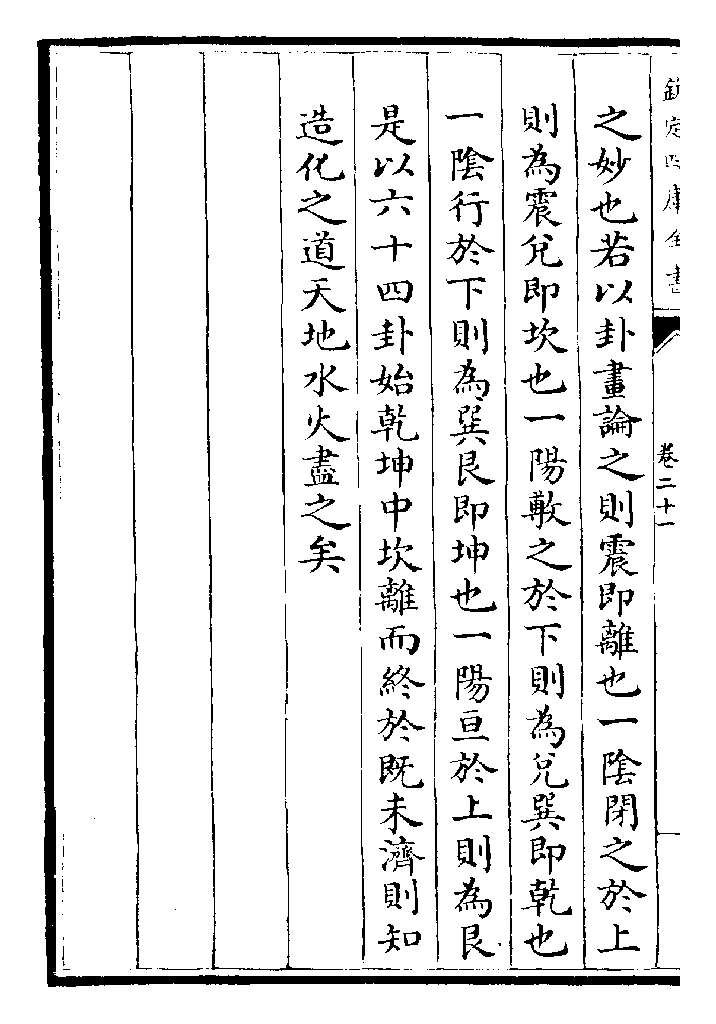 欽定四庫全書
卷二十一
之妙也若以卦畫論之則震即離也一陰閉之於上
則為震兌即坎也一陽敷之於下則為兌巽即乾也
一陰行於下則為巽艮即坤也一陽亘於上則為艮
是以六十四卦始乾坤中坎離而終於既未濟則知
造化之道天地水火盡之矣